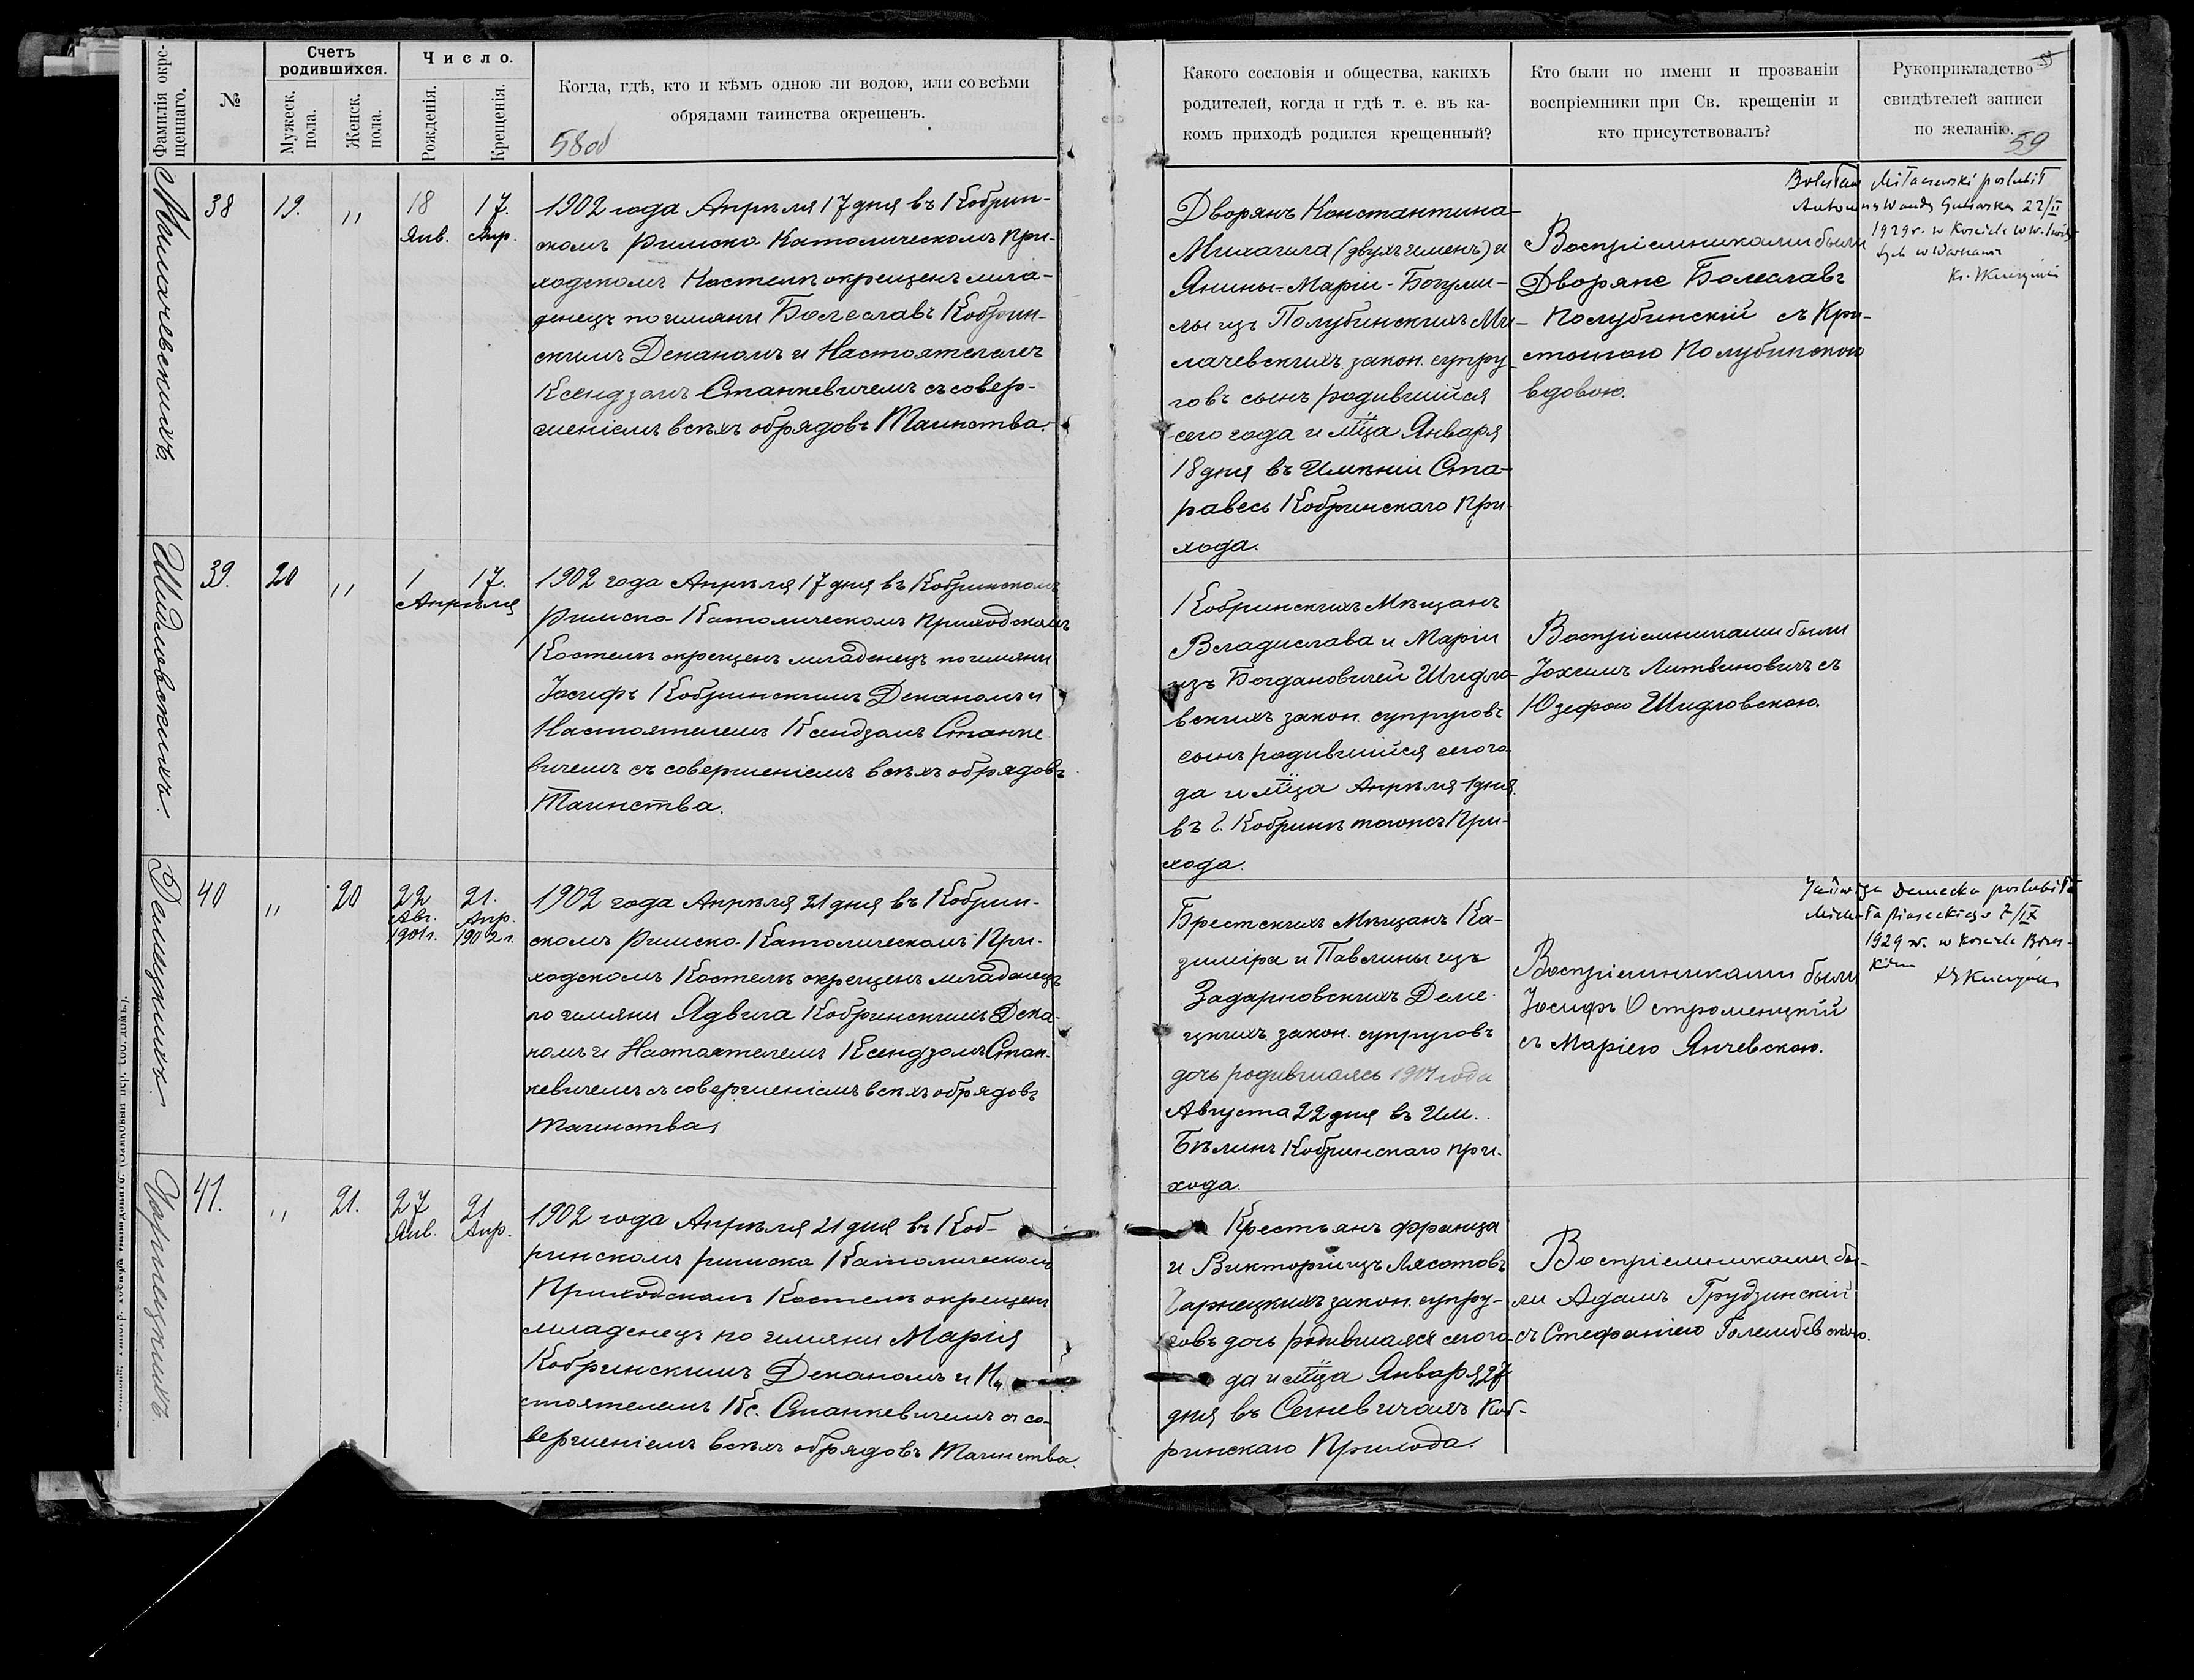 Фамилія окре-
щеннаго.
№
Счетъ
родившихся.
Мужеск.
пола.
Женск.
пола.
Число.
Рожденія.
Крещенія.
Когда, гдѣ, кто и кѣмъ одною ли водою, или со всѣми
обрядами таинства окрещенъ.
58об
Какого сословія и общества, какихъ
родителей, когда и гдѣ т. е. въ ка-
комъ приходѣ родился крещенный?
Кто были по имени и прозваніи
воспріемники при Св. крещеніи и
кто присутствовалъ?
Рукоприкладство
свидѣтелей записи
по желанію.
59
Милачевскихъ.
38
19.
"
18
Янв.
17.
Апр.
1902 года Апрѣля 17 дня въ Кобрин-
скомъ Римско-Католическомъ При-
ходскомъ Костелѣ окрещенъ мла-
денецъ по имяни Болеславъ Кобрин-
скимъ Деканомъ и Настоятелемъ
Ксендзомъ Станкевичемъ съ совер-
шеніемъ всѣхъ обрядовъ Таинства.
Дворянъ Константина-
Михаила (двухъ именъ) и
Янины-Маріи-Богуми-
лы изъ Полубинскихъ Ми-
лачевскихъ закон. супру-
говъ сынъ родившійся
сего года и мца Января
18 дня въ Имѣніи Ста-
равесь Кобринскаго При-
хода.
Воспріемниками были
Дворяне Болеславъ
Полубинскій съ Кри-
стиною Полубинскою
вдовою.
Bolesław Miłaczewski poślubił
Antoninę Wandę 22/II
1929 r. w Kościele W.W. Świę-
tych w Warszawie
Шидловскихъ.
39.
20
"
1
17.
Апрѣля
1902 года Апрѣля 17 дня въ Кобринскомъ
Римско-Католическомъ Приходскомъ
Костелѣ окрещенъ младенецъ по имяни
Іосифъ Кобринскимъ Деканомъ и
Настоятелемъ Ксендзомъ Станке
вичемъ съ совершеніемъ всѣхъ обрядовъ
Таинства.
Кобринскихъ Мѣщанъ
Владислава и Маріи
изъ Богдановичей Шидло-
вскихъ закон. супруговъ
сынъ родившійся сего го-
да и мца Апрѣля 1 дня
въ г. Кобринѣ тогожъ При-
хода.
Воспріемниками были
Іохимъ Литвиновичъ съ
Юзефою Шидловскою.
Дамецкихъ.
40
"
20
22
Авг.
1901 г.
21.
Апр.
1902 г.
1902 года Апрѣля 21 дня въ Кобрин-
скомъ Римско-Католическомъ При-
ходскомъ Костелѣ окрещенъ младенецъ
по имяни Ядвига Кобринскимъ Дека-
номъ и Настоятелемъ Ксендзомъ Стан-
кевичемъ съ совершеніемъ всѣхъ обрядовъ
Таинства
Брестскихъ Мѣщанъ Ка-
зиміра и Павлины изъ
Задарновскихъ Деме-
цкихъ закон. супруговъ
дочь родившаяся 1901 года
Августа 22 дня въ Им.
Бѣлинъ Кобринскаго при-
хода.
Воспріемниками были
Іосифъ Остроменцкій
съ Маріею Янчевскою.
Jadwiga Demecka poślubiła
Michała Piaseckiego 7/IX
1929 r. w Kościele Brzes-
kim
Чарнецкихъ.
41.
"
21.
27
Янв.
21
Апр.
1902 года Апрѣля 21 дня въ Коб-
ринскомъ римско Католическомъ
Приходскомъ Костелѣ окрещенъ
младенецъ по имяни Марія
Кобринскимъ Деканомъ и На
стоятелемъ Кс. Станкевичемъ съ со-
вершеніемъ всѣхъ обрядовъ Таинства.
Крестьянъ Франца
и Викторіи изъ Лясотовъ
Чарнецкихъ закон. супру-
говъ дочь родившаяся сего го-
да и мца Января 27
дня въ Сегневичахъ Коб-
ринскаго Прихода.
Воспріемниками бы-
ли Адамъ Грудзинскій
съ Стефаніею Голембевскою.